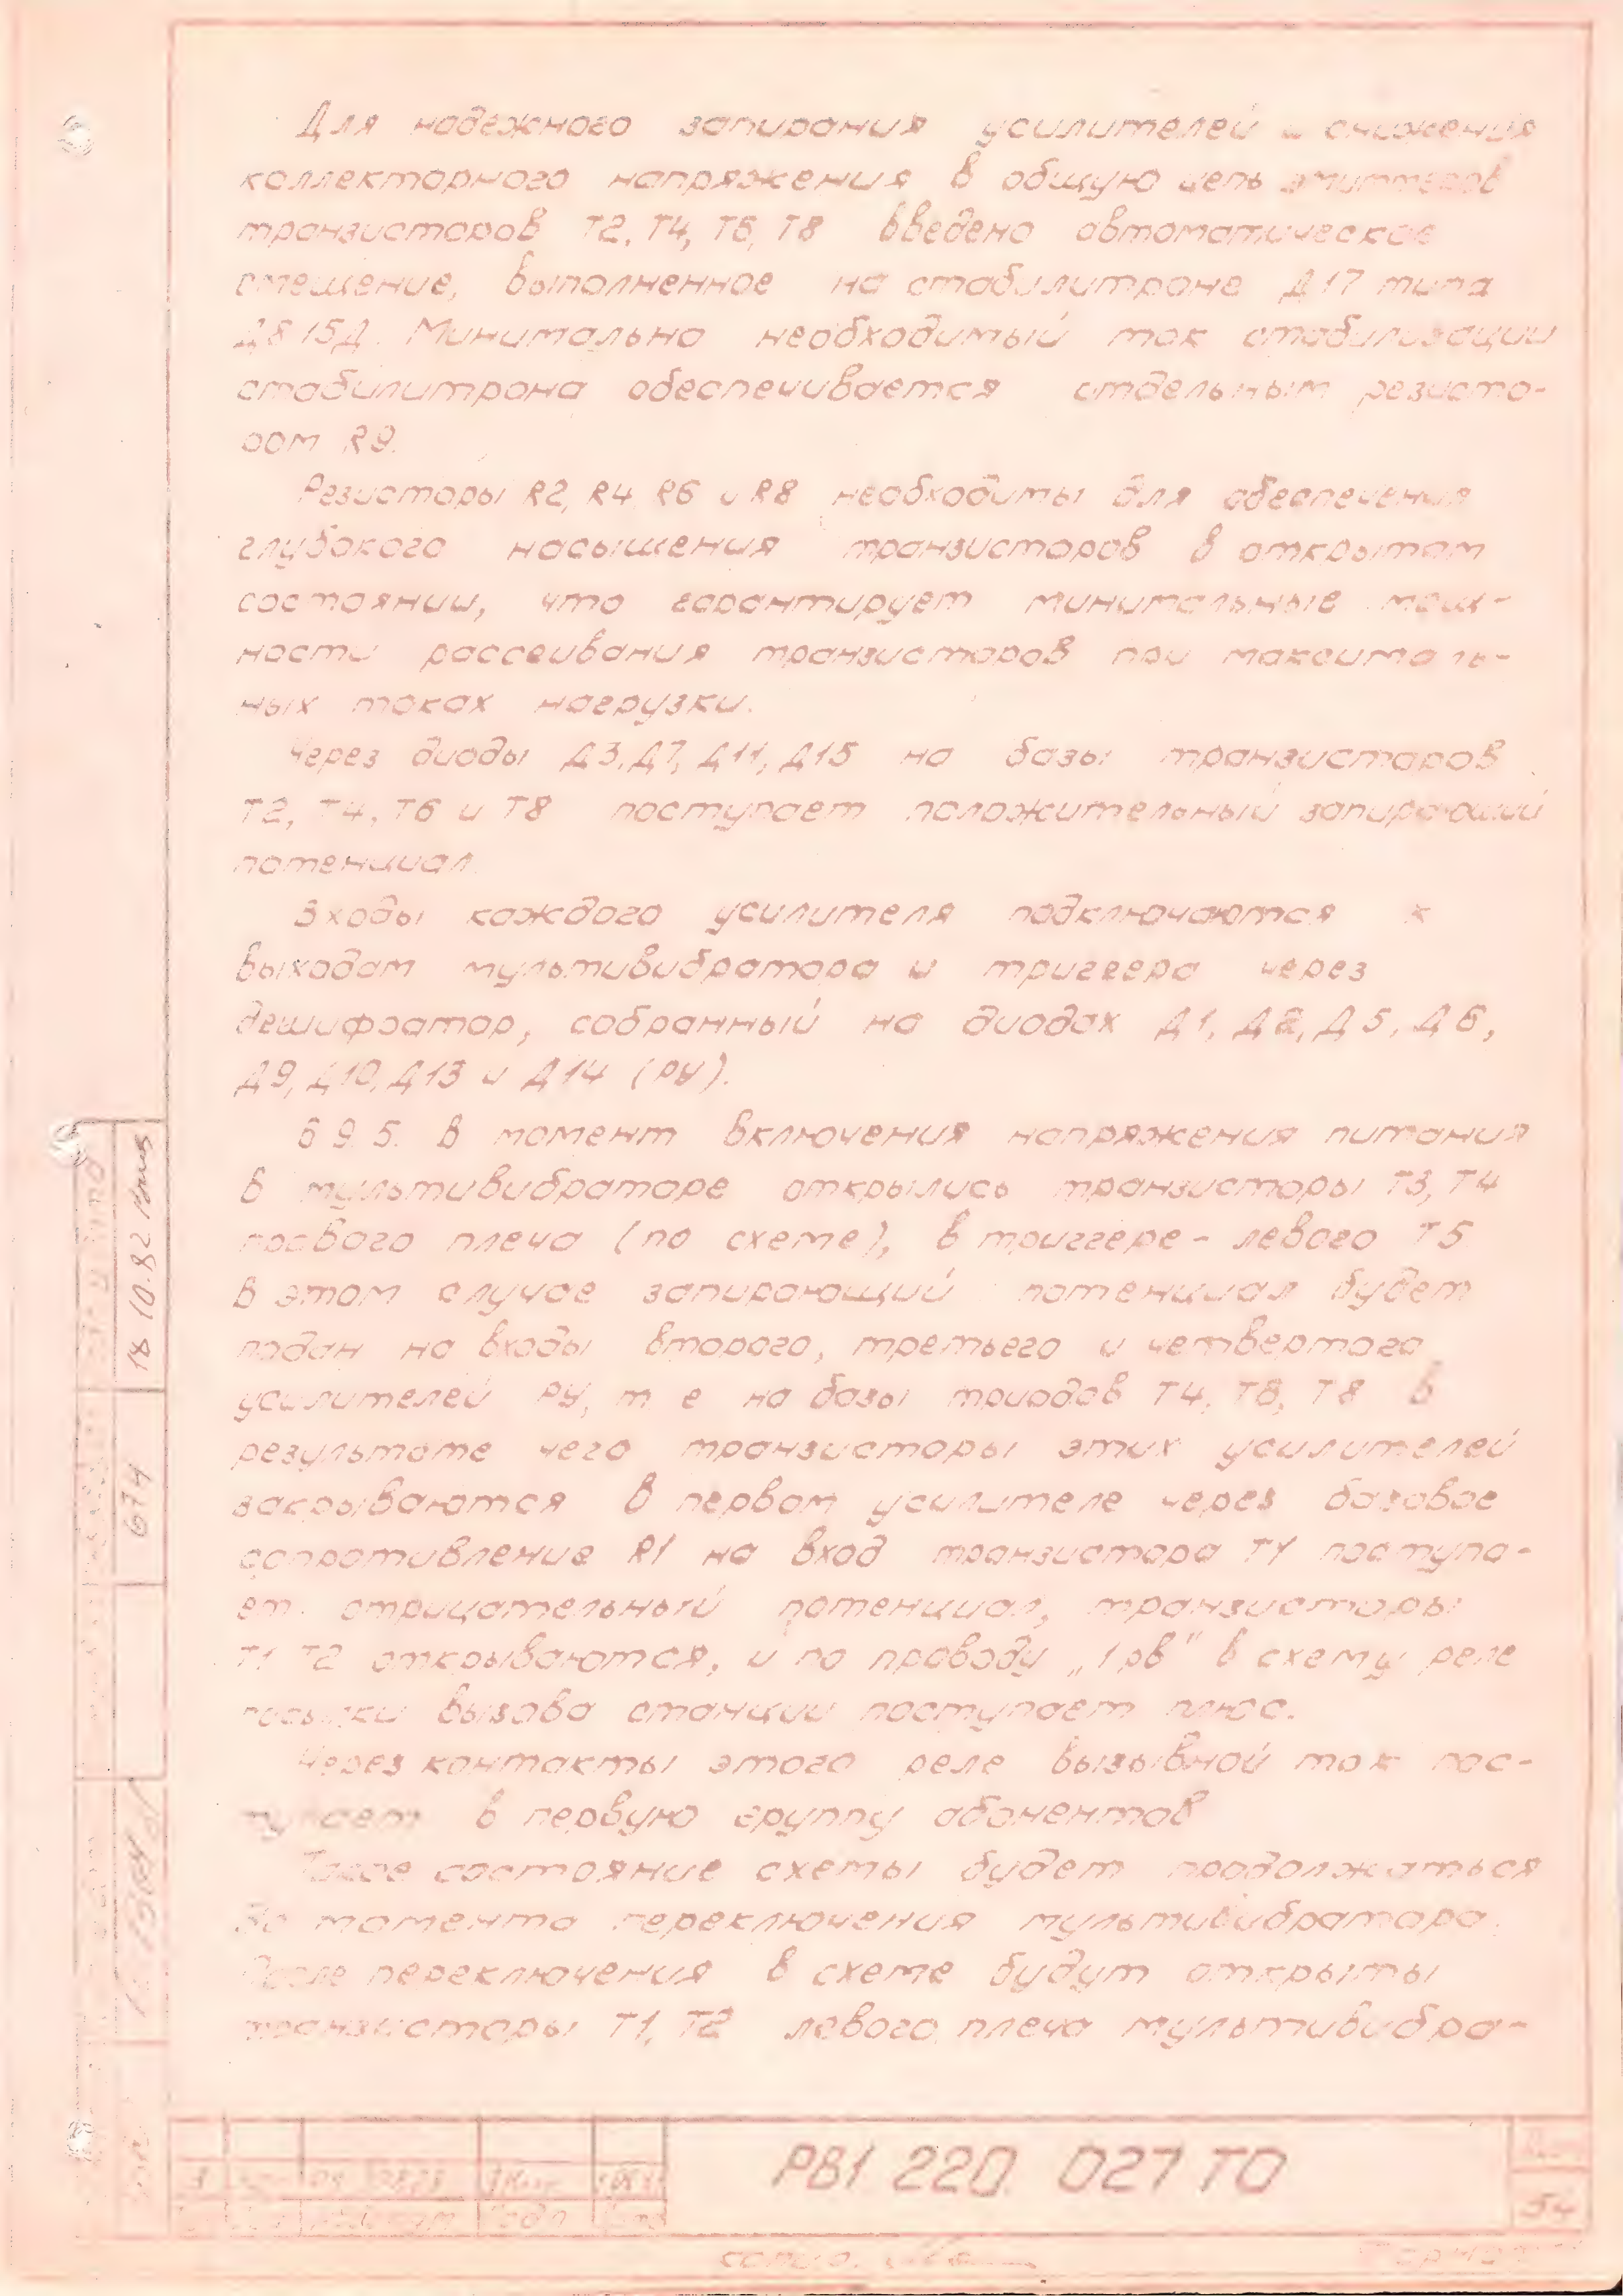 Для надежного запирания усилителей и снижения
коллекторного напряжения в общую цепь эмиттеров
транзисторов Т2, Т4, Т6, Т8 введено автоматическое
смещение, выполненное на стабилитроне Д17 типа
Д815Д. Минимально необходимый ток стабилизации
стабилитрона обеспечивается отдельным резисто-
ром R9.
Резисторы R2, R4, R6 и R8 необходимы для обеспечения
глубокого насыщения транзисторов в открытом
состоянии, что гарантирует минимальные мощ-
ности рассеивания транзисторов при максималь-
ных токах нагрузки.
Через диоды Д3, Д7, Д11, Д15 на базы транзисторов
Т2, Т4, Т6 и Т8 поступает положительный запирающий
потенциал.
Входы каждого усилителя подключаются к
выходам мультивибратора и триггера через
дешифратор, собранный на диодах Д1, Д2, Д5, Д6,
Д9, Д10, Д13 и Д14 (РУ).
6.9.5. В момент включения напряжения питания
в мультивибраторе открылись транзисторы Т3, Т4
правого плеча (по схеме), в триггере - левого Т5
В этом случае запирающий потенциал будет
подан на входы второго, третьего и четвертого
усилителей РУ, т. е. на базы триодов Т4, Т6, Т8 В
результате чего транзисторы этих усилителей
закрываются В первом усилителе через базовое
сопротивление R1 на вход транзистора Т1 поступа-
ет отрицательный потенциал, транзисторы
Т1 Т2 открываются, и по проводу „1рв" в схему реле
посылки вызова станции поступает плюс.
Через контакты этого реле вызывной ток пос-
тупает в первую группу абонентов
Такое состояние схемы будет продолжаться
до момента переключения мультивибратора.
После переключения в схеме будут открыты
транзисторы Т1, Т2 левого плеча мультивибра-
18.10.82
674
РВ1 220. 027 ТО
54